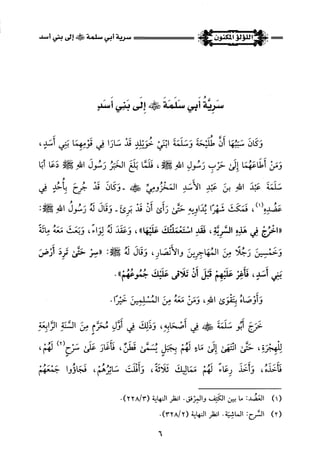 اللؤلؤ المكنون
سرية أبي سلمة ﷺ إلى بني أسد
سَرِيَّةُ أَبِي سَلَمَةَ ﷺ إِلَى بَنِي أَسَدٍ
وَكَانَ سَبَبُهَا أَنَّ طُلَيْحَةَ وَسَلَمَةَ ابْنَيْ خُوَيْلِدٍ قَدْ سَارَا فِي قَوْمِهِمَا بَنِي أَسَدٍ،
وَمَنْ أَطَاعَهُمَا إِلَىٰ حَرْبِ رَسُولِ اللهِ ﷺ، فَلَمَّا بَلَغَ الْخَبَرُ رَسُولَ اللهِ ﷺ دَعَا أَبَا
سَلَمَةَ عَبْدَ اللهِ بنَ عَبْدِ الأَسَدِ الْمَخْزُومِيَّ ﷺ - وَكَانَ قَدْ جُرِحَ بِأُحُدٍ فِي
عَضُدِهِ(١)، فَمَكَثَ شَهْرًا يُدَاوِيهِ حَتَّىٰ رَأَىٰ أَنْ قَدْ بَرِئَ - وَقَالَ لَهُ رَسُولُ اللهِ ﷺ:
«اخْرُجْ فِي هَذِهِ السَّرِيَّةِ، فَقَدِ اسْتَعْمَلْتُكَ عَلَيْهَا»، وَعَقَدَ لَهُ لِوَاءً، وَبَعَثَ مَعَهُ مِائَةً
وَخَمْسِينَ رَجُلًا مِنَ الْمُهَاجِرِينَ وَالأَنْصَارِ، وَقَالَ لَهُ ﷺ: «سِرْ حَتَّىٰ تَرِدَ أَرْضَ
بَنِي أَسَدٍ، فَأَغِرْ عَلَيْهِمْ قَبْلَ أَنْ تَلَاقَى عَلَيْكَ جُمُوعُهُمْ».
وَأَوْصَاهُ بِتَقْوَى اللهِ، وَمَنْ مَعَهُ مِنَ الْمُسْلِمِينَ خَيْرًا.
خَرَجَ أَبُو سَلَمَةَ ﷺ فِي أَصْحَابِهِ، وَذَلِكَ فِي أَوَّلِ مُحَرَّمٍ مِنَ السَّنَةِ الرَّابِعَةِ
لِلْهِجْرَةِ، حَتَّىٰ انْتَهَىٰ إِلَىٰ مَاءٍ لَهُمْ بِجَبَلٍ يُسَمَّىٰ قَطَنٌ، فَأَغَارَ عَلَىٰ سَرْحٍ(٢) لَهُمْ،
فَأَخَذَهُ، وَأَخَذَ رِعَاءً لَهُمْ مَمَالِيكَ ثَلَاثَةً، وَأَفْلَتَ سَائِرُهُمْ، فَجَاؤُوا جَمْعَهُمْ
(١) العَضُد: ما بين الكَتِف والمِرْفق. انظر النهاية (٢٢٨/٣).
(٢) السَّرح: الماشِيَة. انظر النهاية (٣٢٨/٢).
٦